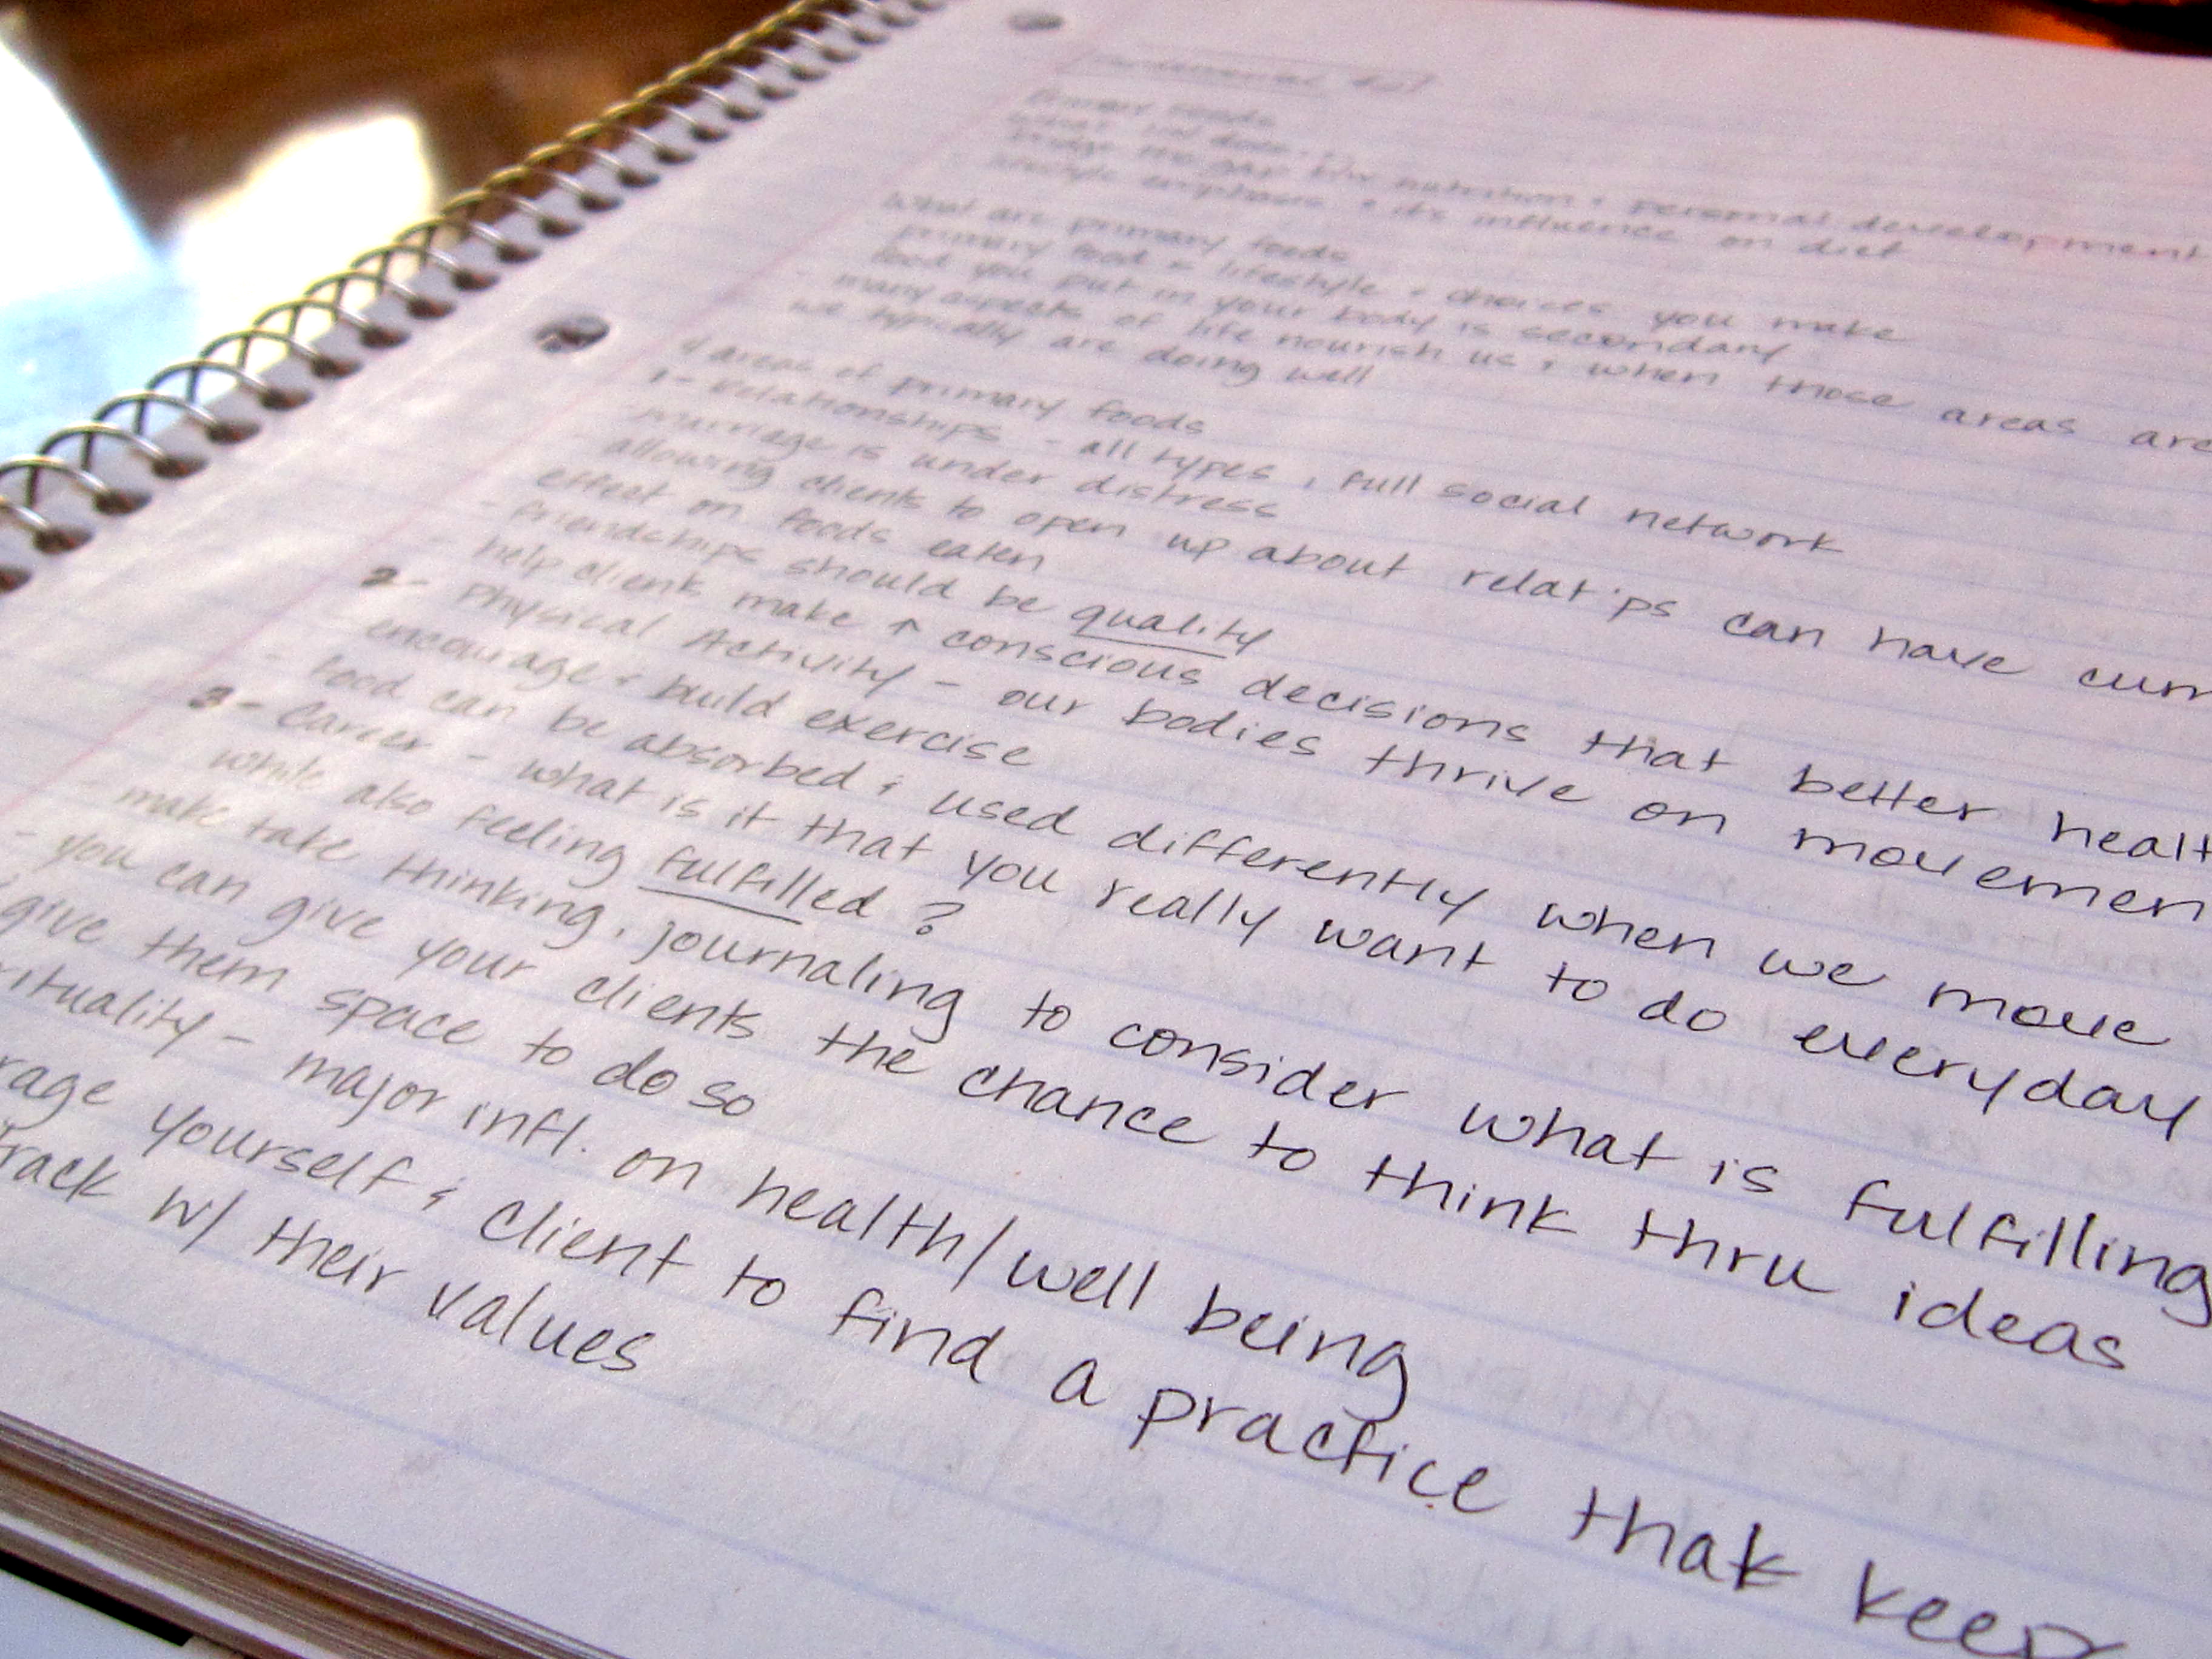 Primary Foods
bridge the gap btw nutrition & personal development
lifestyle emphasis & its influence on diet
What are primary foods
primary food = lifestyle & choices you make
food you put in your body is secondary
many aspects of life nourish us & when those areas are
we typically are doing well
4 areas of primary foods
1- Relationships - all types, full social network
marriage is under distress
allowing clients to open up about relat'ps can have cum
effect on foods eaten
- friendships should be quality
- help clients make ↑ conscious decisions that better healt
2- Physical Activity - our bodies thrive on movemen
encourage & build exercise
- food can be absorbed & used differently when we move
3- Career - what is it that you really want to do everyday
while also feeling fulfilled?
make take thinking, journaling to consider what is fulfilling
- you can give your clients the chance to think thru ideas
give them space to do so
rituality - major infl. on health/well being
rage yourself & client to find a practice that keep
rack w/ their values